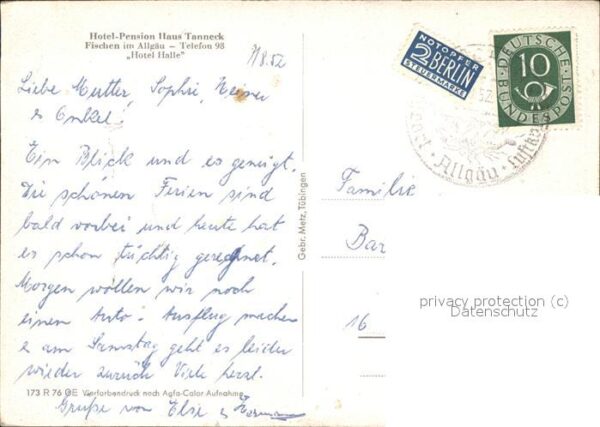 Hotel-Pension Haus Tanneck
Fischen im Allgäu – Telefon 98
„Hotel Halle"
8.52
Liebe Mutter, Sophie, Heiner
& Onkel!
Ein Blick und es genügt.
Die schönen Ferien sind
bald vorbei und heute hat
es schon tüchtig geregnet.
Morgen wollen wir noch
einen Auto-Ausflug machen
& am Samstag geht es leider
wieder zurück. Viele herzl.
173 R 76 GE Vierfarbendruck nach Agfa-Color-Aufnahme
Grüße von Else & Hermann
Gebr. Metz, Tübingen
NOTOPFER
2 BERLIN
STEUERMARKE
DEUTSCHE
BUNDESPOST
10
52
Allgäu · Luftk
Familie
Bar
16
privacy protection (c)
Datenschutz